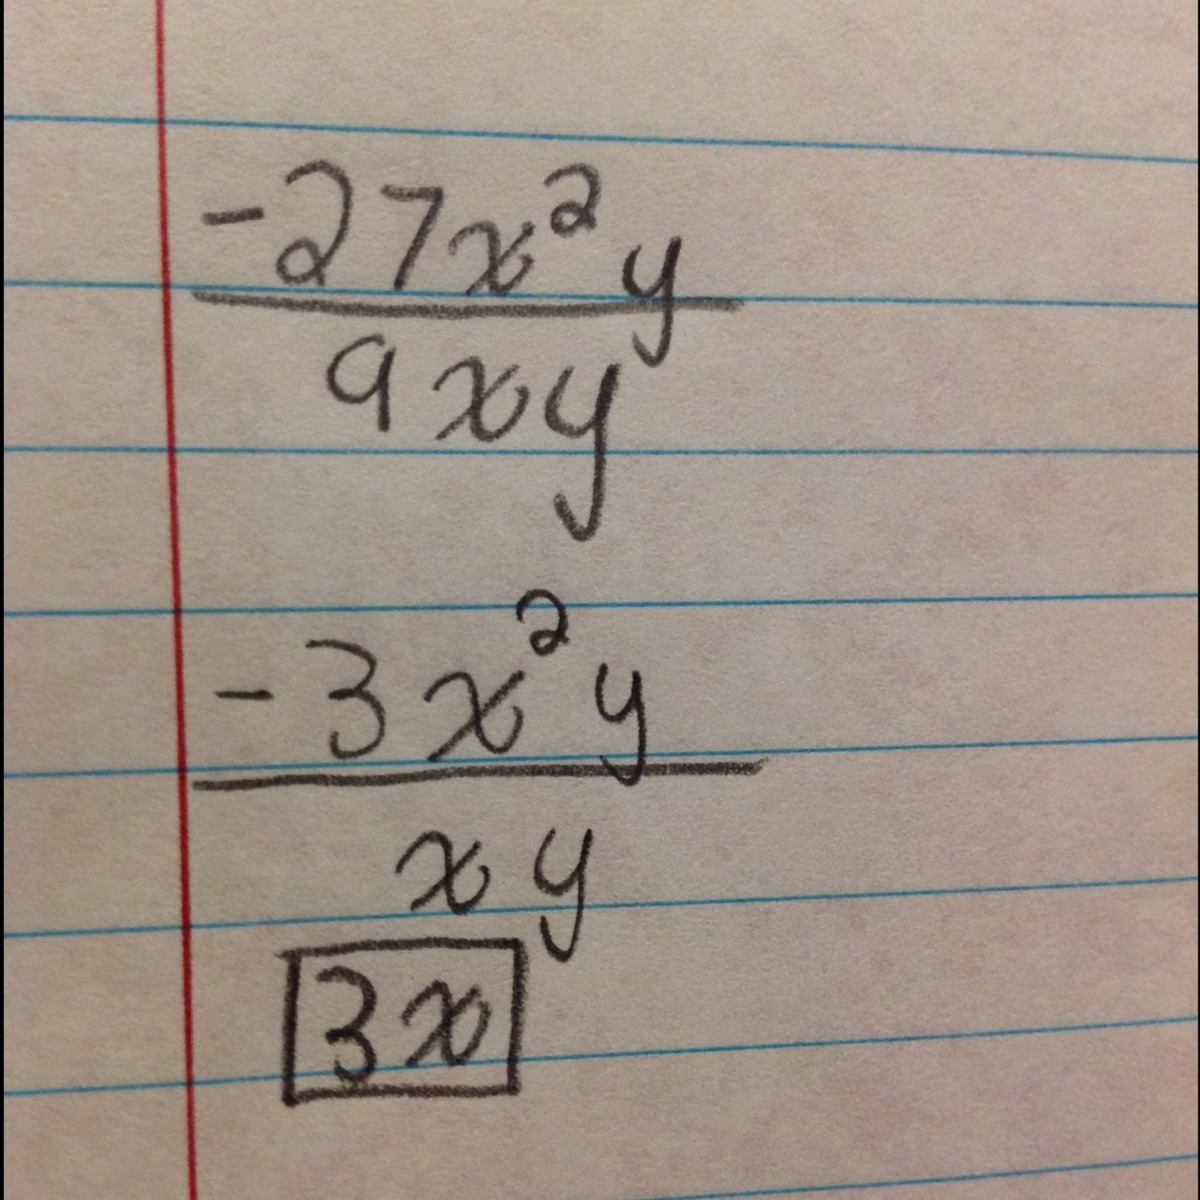 -27x²y
9xy
-3x²y
xy
3x